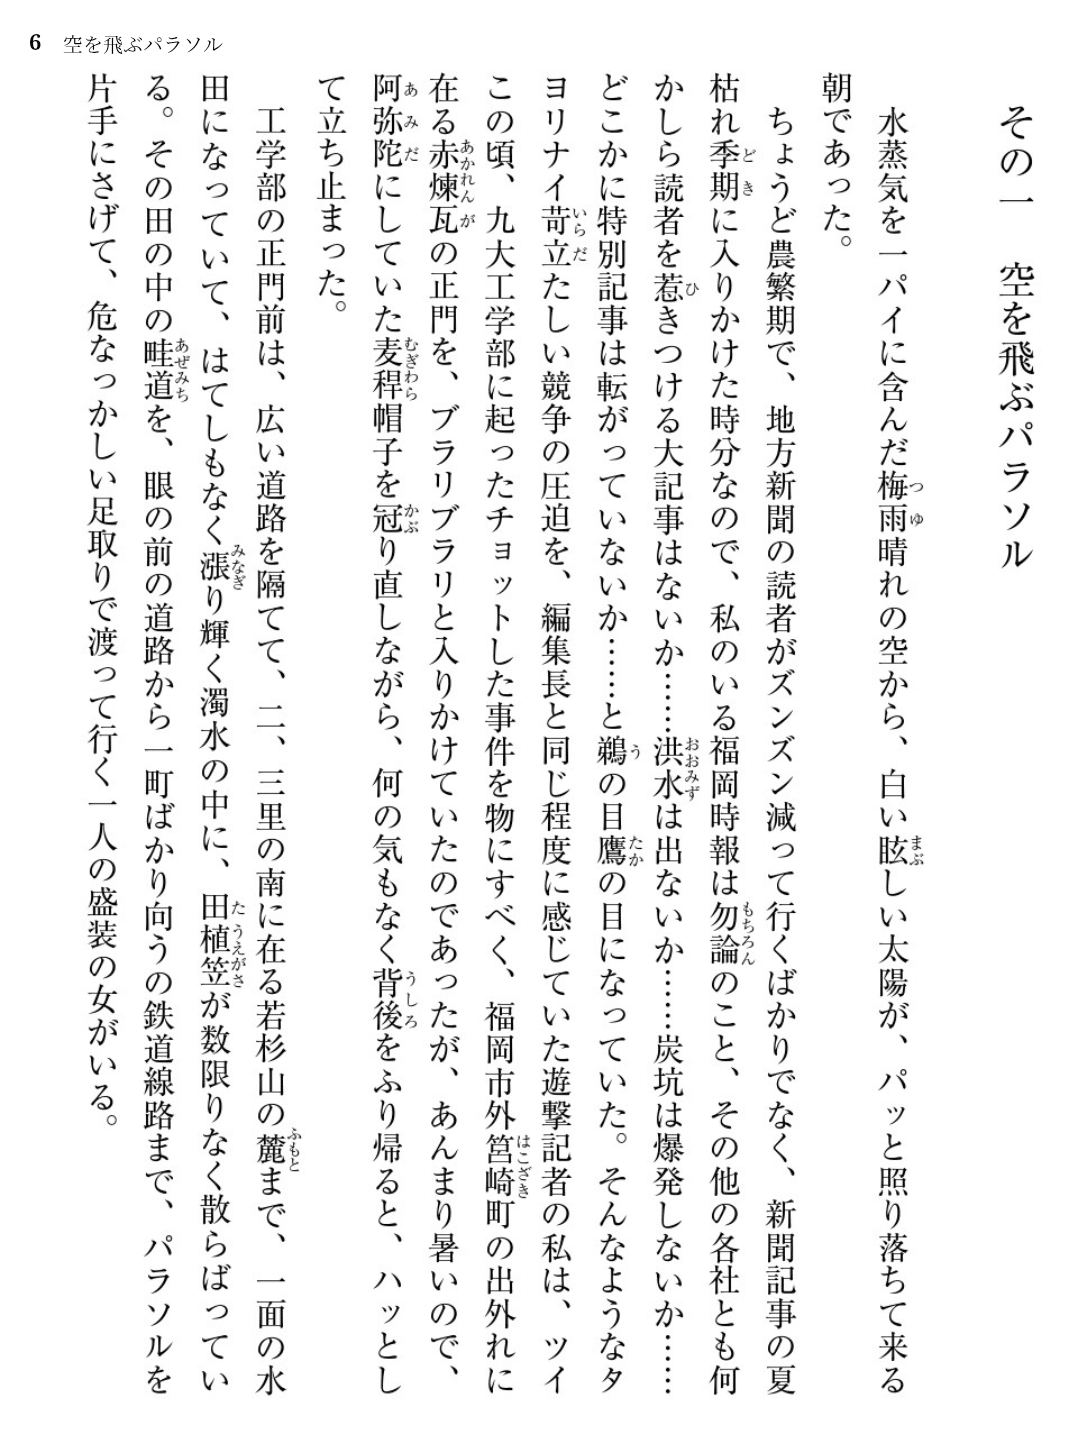 6 空を飛ぶパラソル
その一　空を飛ぶパラソル
水蒸気を一パイに含んだ梅雨晴れの空から、白い眩しい太陽が、パッと照り落ちて来る
朝であった。
ちょうど農繁期で、地方新聞の読者がズンズン減って行くばかりでなく、新聞記事の夏
枯れ季期に入りかけた時分なので、私のいる福岡時報は勿論のこと、その他の各社とも何
かしら読者を惹きつける大記事はないか……洪水は出ないか……炭坑は爆発しないか……
どこかに特別記事は転がっていないか……と鵜の目鷹の目になっていた。そんなようなタ
ヨリナイ苛立たしい競争の圧迫を、編集長と同じ程度に感じていた遊撃記者の私は、ツイ
この頃、九大工学部に起ったチョットした事件を物にすべく、福岡市外筥崎町の出外れに
在る赤煉瓦の正門を、ブラリブラリと入りかけていたのであったが、あんまり暑いので、
阿弥陀にしていた麦稈帽子を冠り直しながら、何の気もなく背後をふり帰ると、ハッとし
て立ち止まった。
工学部の正門前は、広い道路を隔てて、二、三里の南に在る若杉山の麓まで、一面の水
田になっていて、はてしもなく漲り輝く濁水の中に、田植笠が数限りなく散らばってい
る。その田の中の畦道を、眼の前の道路から一町ばかり向うの鉄道線路まで、パラソルを
片手にさげて、危なっかしい足取りで渡って行く一人の盛装の女がいる。